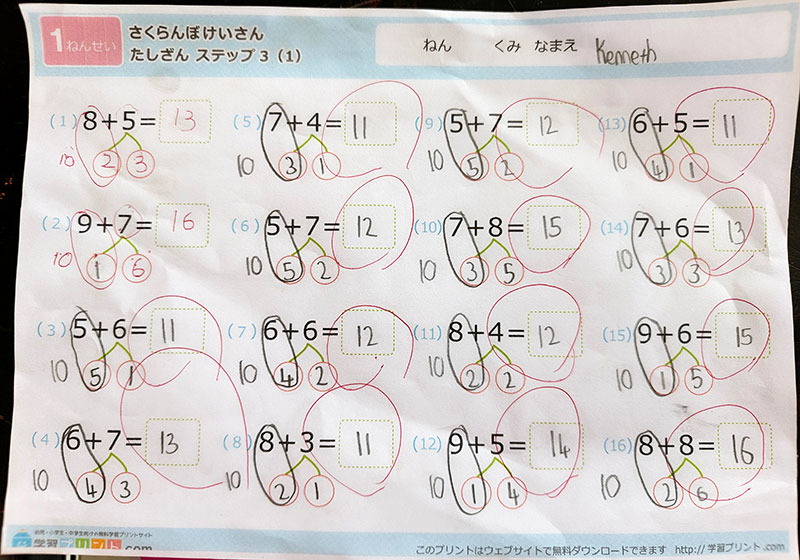 1ねんせい
さくらんぼけいさん
たしざん ステップ3 (1)
ねん くみ なまえ Kenneth
(1) 8+5= 13
10 2 3
(5) 7+4= 11
10 3 1
(9) 5+7= 12
10 5 2
(13) 6+5= 11
10 4 1
(2) 9+7= 16
10 1 6
(6) 5+7= 12
10 5 2
(10) 7+8= 15
10 3 5
(14) 7+6= 13
10 3 3
(3) 5+6= 11
10 5 1
(7) 6+6= 12
10 4 2
(11) 8+4= 12
10 2 2
(15) 9+6= 15
10 1 5
(4) 6+7= 13
10 4 3
(8) 8+3= 11
10 2 1
(12) 9+5= 14
10 1 4
(16) 8+8= 16
10 2 6
幼児・小学生・中学生向け無料学習プリントサイト
学習プリント.com
このプリントはウェブサイトで無料ダウンロードできます http://学習プリント.com